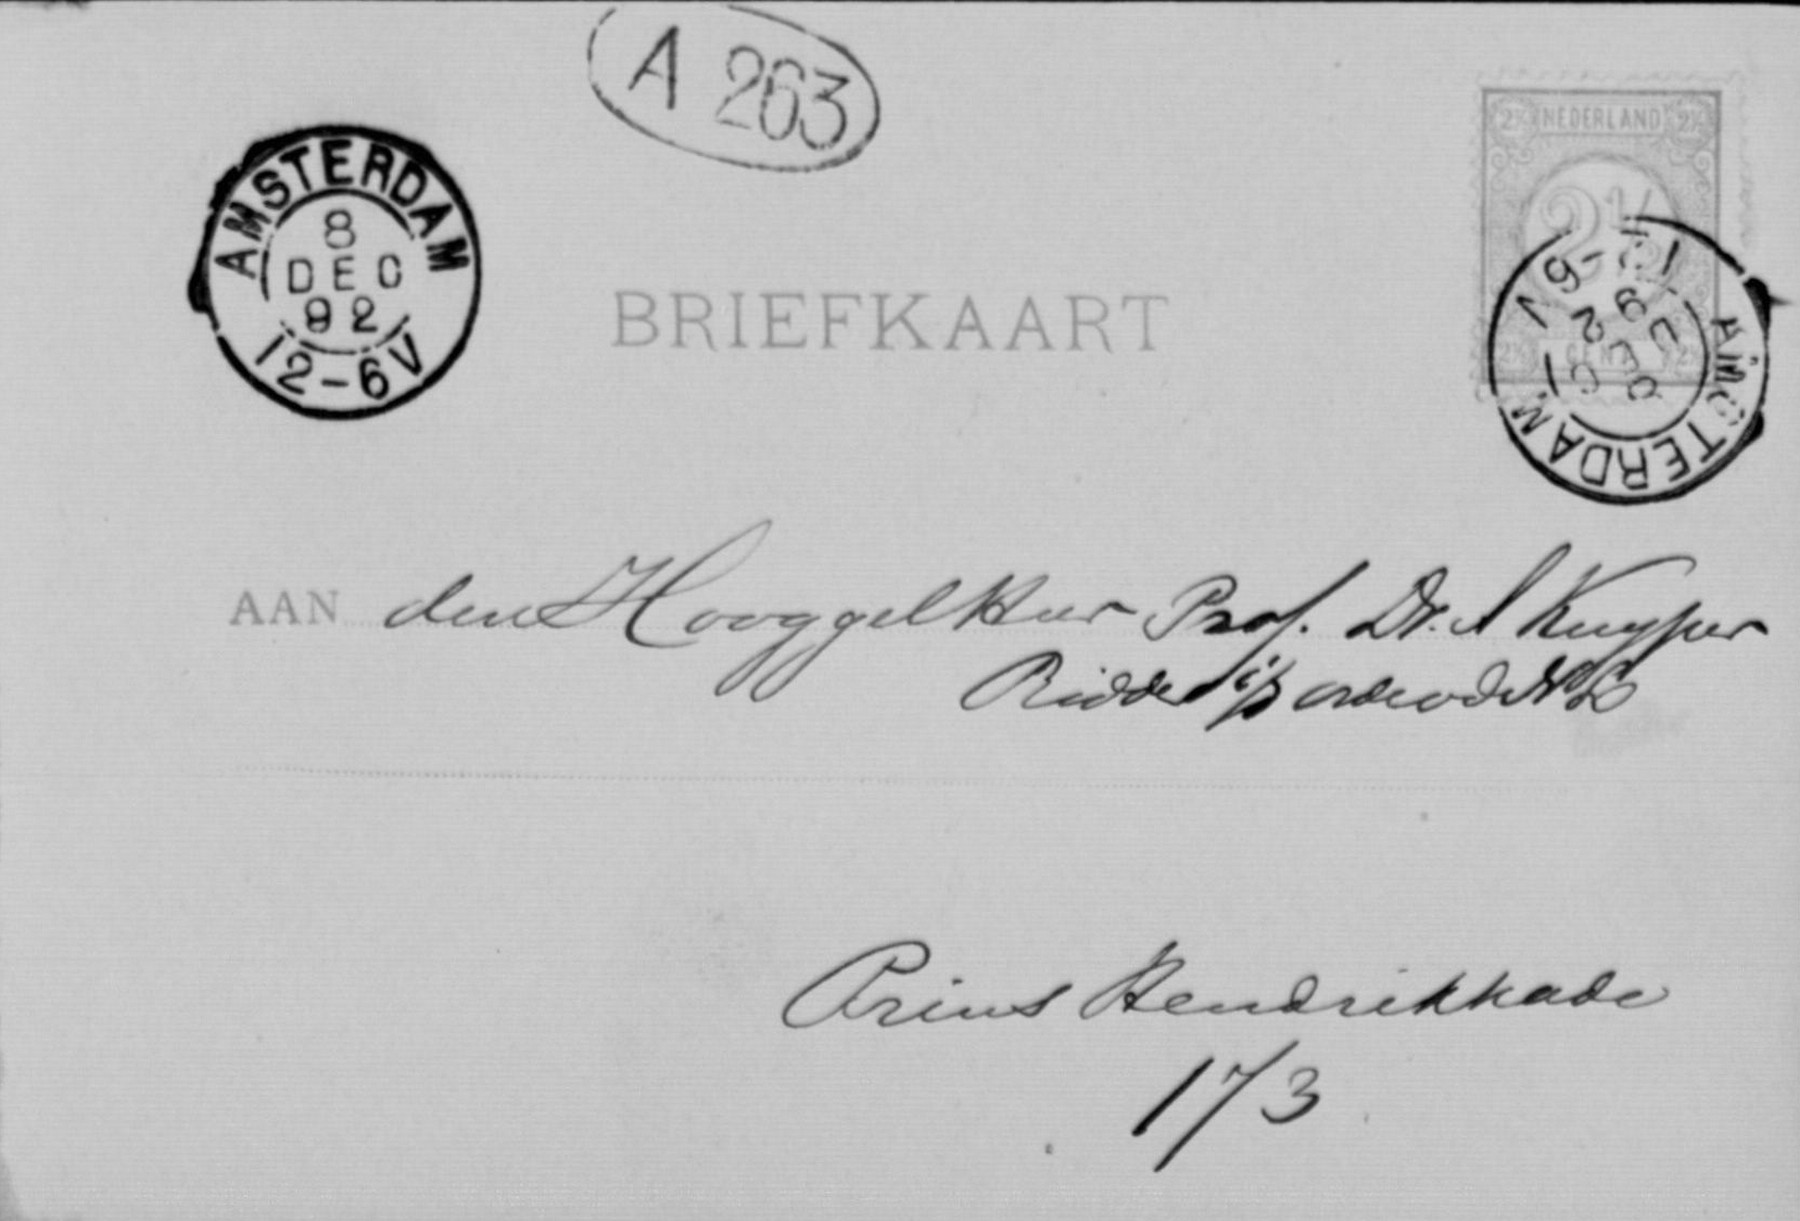 A 263
AMSTERDAM
8
DEC
92
12-6V
NEDERLAND
2½
CENT
AMSTERDAM
8
DEC
92
12-6V
BRIEFKAART
AAN den Hooggel Heer Prof. Dr. A Kuyper
Ridder i/d orde v d N L
Prins Hendrikkade
173